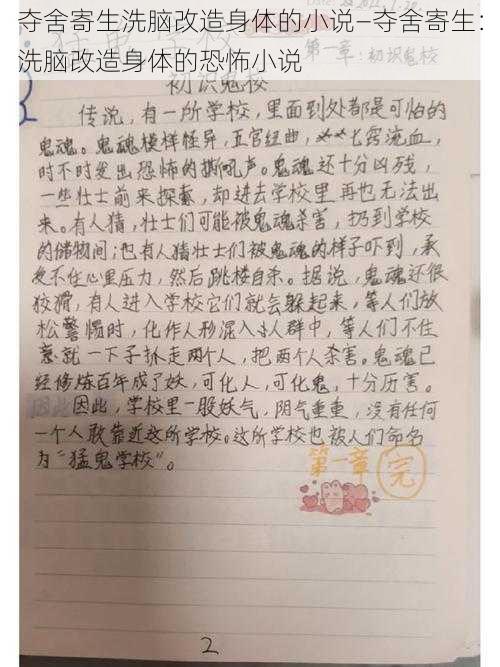 夺舍寄生洗脑改造身体的小说—夺舍寄生:
洗脑改造身体的恐怖小说
第一章:初识鬼校
初识鬼校
传说,有一所学校,里面到处都是可怕的
鬼魂。鬼魂模样怪异,五官纽曲,七窍流血,
时不时发出恐怖的撕吼声。鬼魂还十分凶残,
一些壮士前来探索,却进去学校里再也无法出
来。有人猜,壮士们可能被鬼魂杀害,扔到学校
的储物间;也有人猜壮士们被鬼魂的样子吓到,承
受不住心里压力,然后跳楼自杀。据说,鬼魂还很
狡猾,有人进入学校它们就会躲起来,等人们放
松警惕时,化作人形混入人群中,等人们不住
意就一下子扒走两个人,把两个人杀害。鬼魂已
经修炼百年成了妖,可化人,可化鬼,十分历害。
因此,学校里一股妖气,阴气重重,没有任何
一个人敢靠近这所学校。这所学校也被人们命名
为"猛鬼学校"。
第一章 完
2